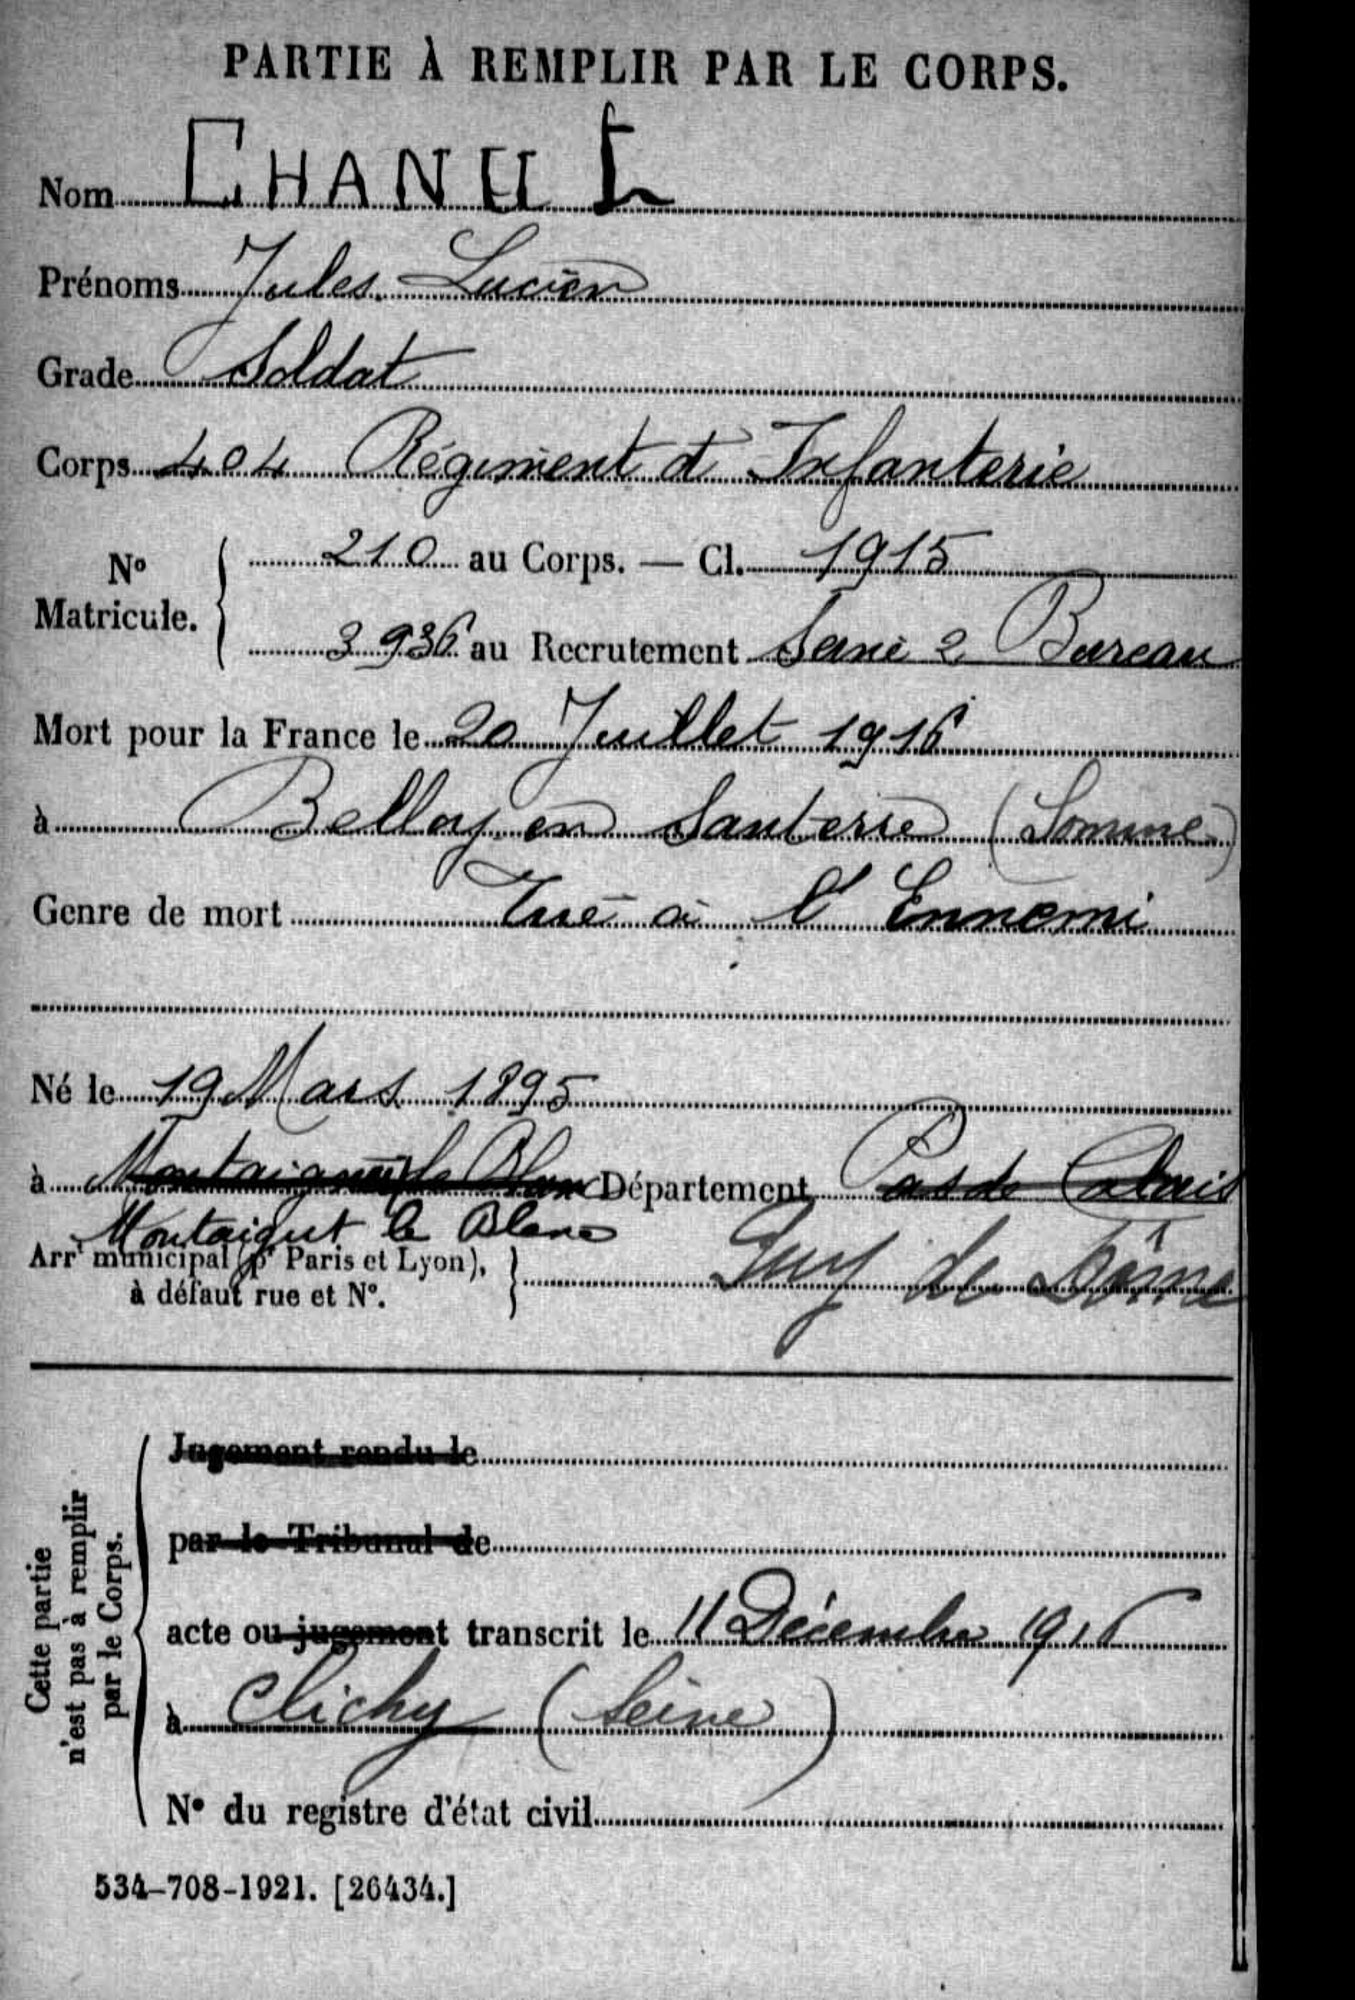 PARTIE À REMPLIR PAR LE CORPS.
Nom CHANUT
Prénoms Jules Lucien
Grade Soldat
Corps 404 Régiment d'Infanterie
Nº Matricule. 210 au Corps. — Cl. 1915
3936 au Recrutement Seine 2 Bureau
Mort pour la France le 20 Juillet 1916
à Belloy en Santerre (Somme)
Genre de mort Tué à l'Ennemi
Né le 19 Mars 1895
à Montaigut le Blanc Département Pas de Calais
Montaigut le Blanc
Arrt municipal (pr Paris et Lyon), à défaut rue et Nº. Puy de Dôme
Cette partie n'est pas à remplir par le Corps.
Jugement rendu le
par le Tribunal de
acte ou jugement transcrit le 11 Décembre 1916
à Clichy (Seine)
Nº du registre d'état civil
534-708-1921. [26434.]